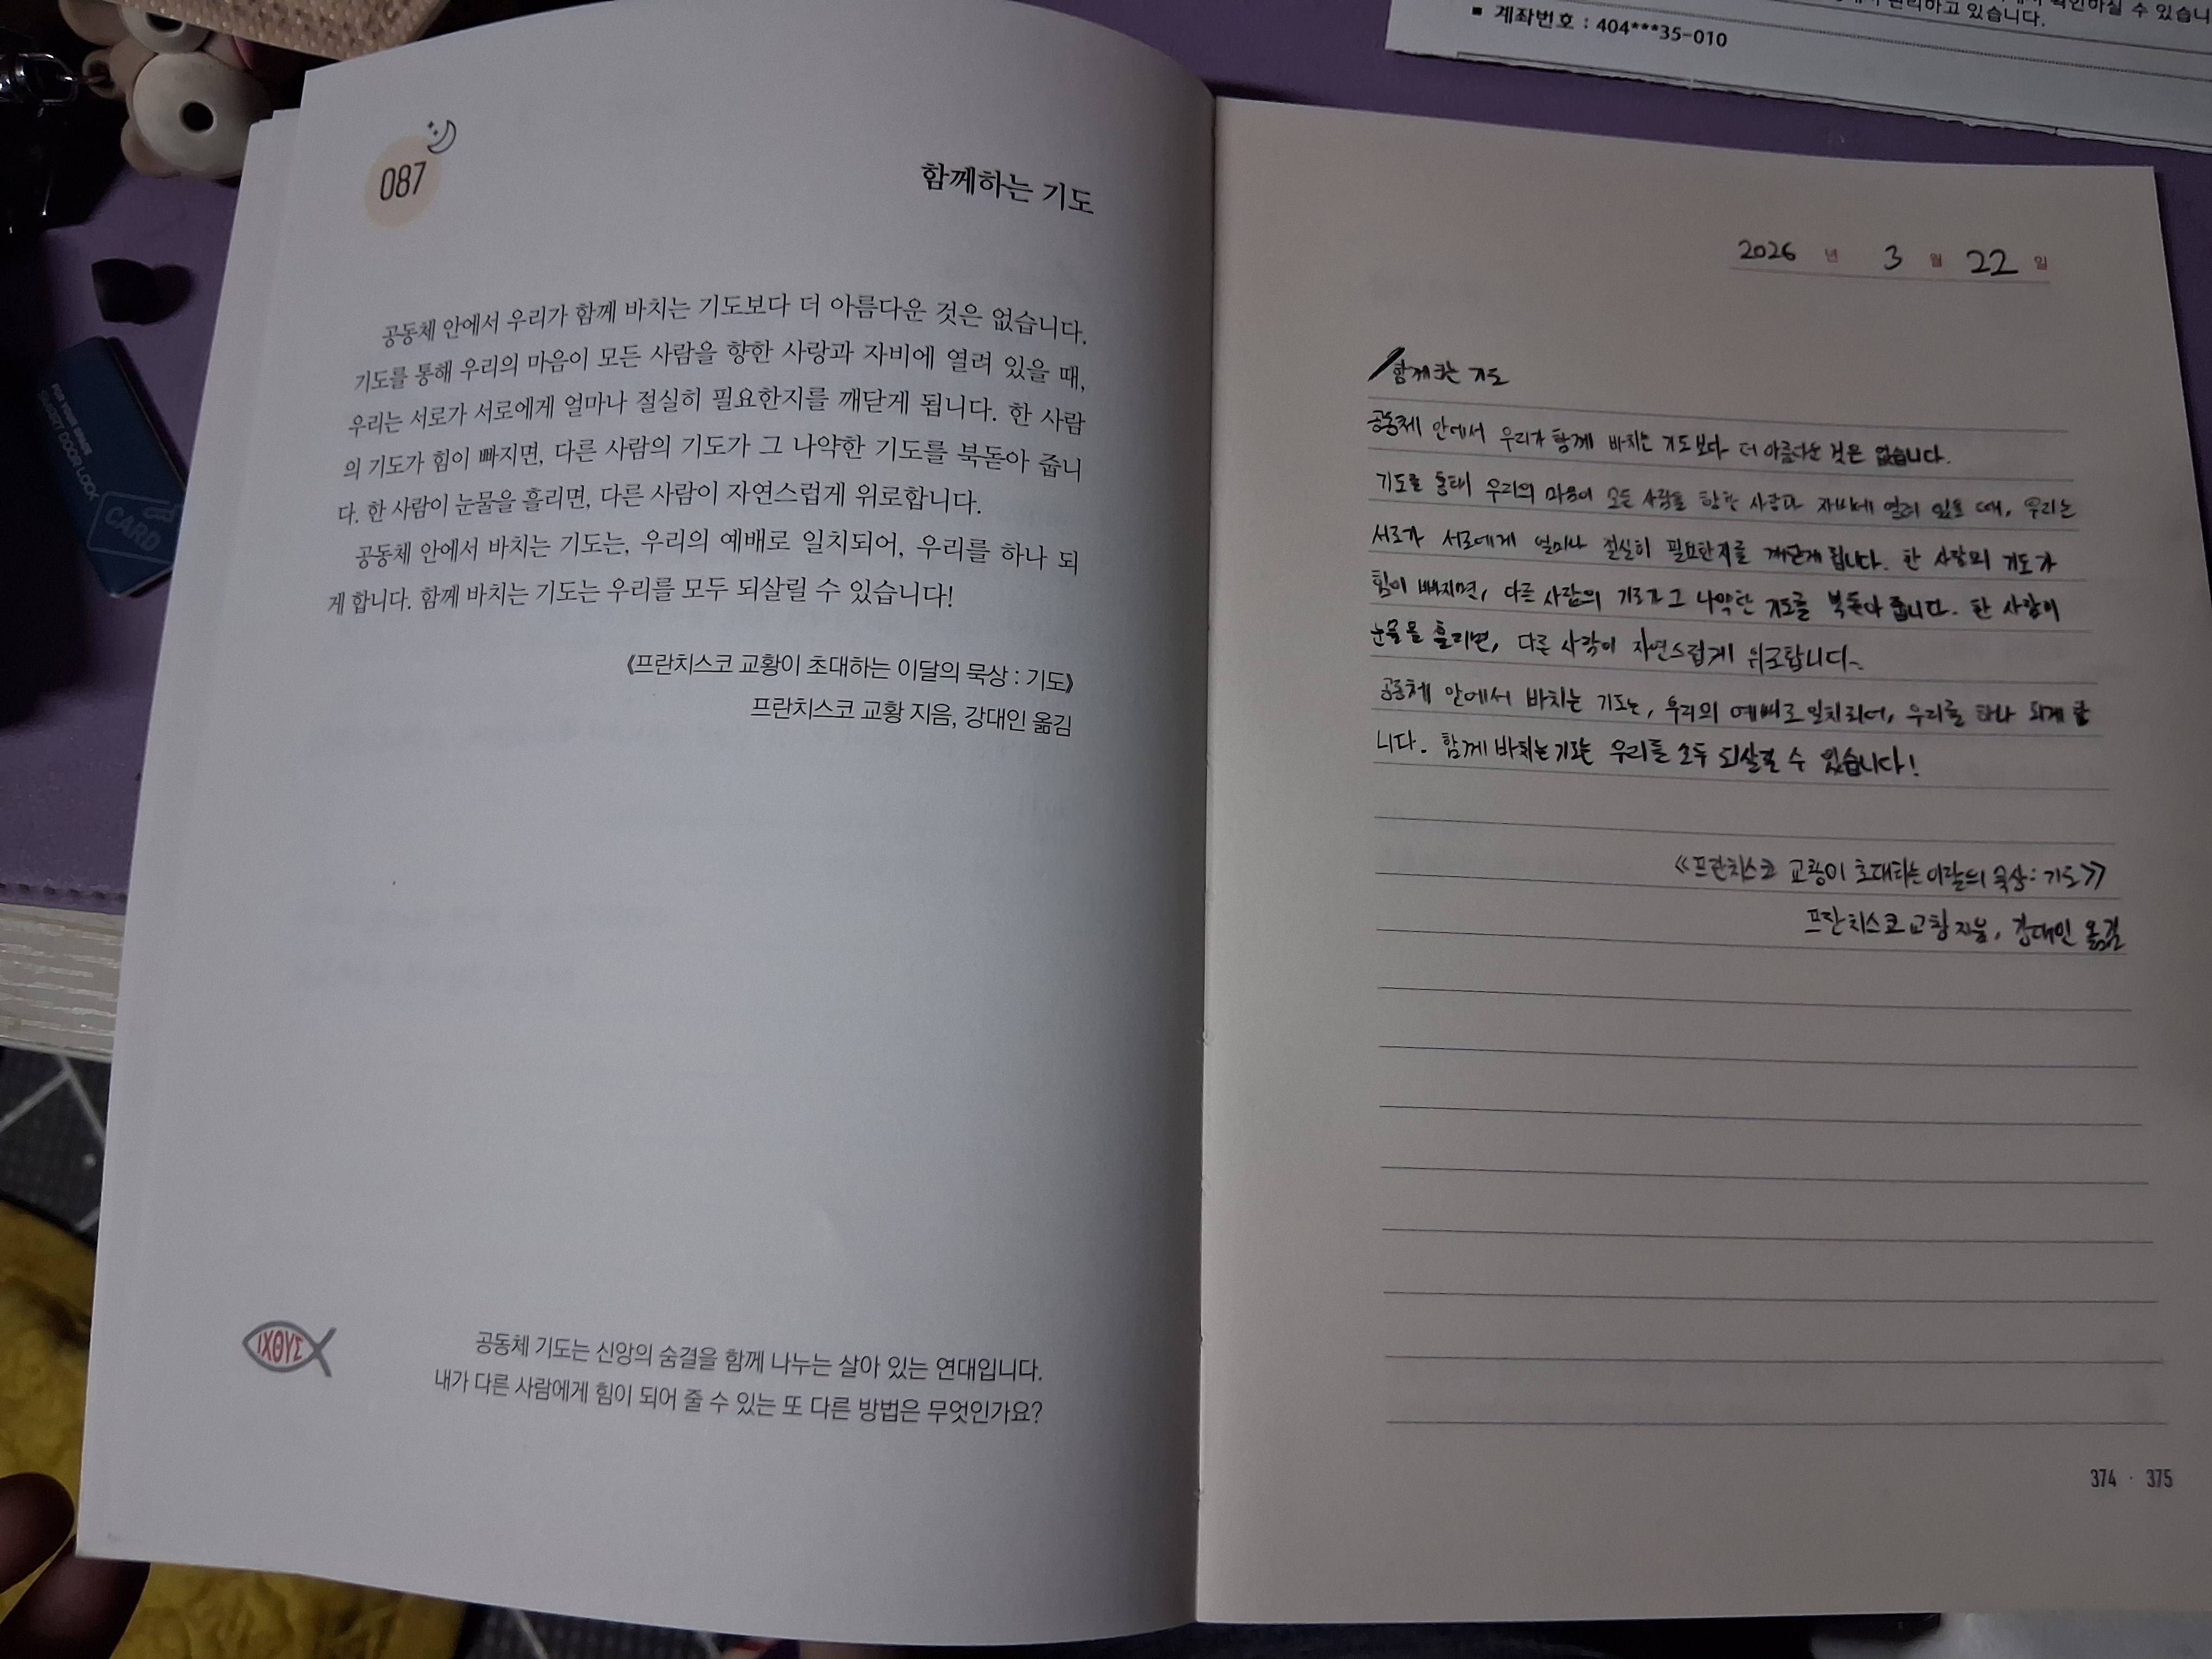 관리하고 있습니다.
확인하실 수 있습니
▪ 계좌번호 : 404***35-010
087
함께하는 기도
공동체 안에서 우리가 함께 바치는 기도보다 더 아름다운 것은 없습니다.
기도를 통해 우리의 마음이 모든 사람을 향한 사랑과 자비에 열려 있을 때,
우리는 서로가 서로에게 얼마나 절실히 필요한지를 깨닫게 됩니다. 한 사람
의 기도가 힘이 빠지면, 다른 사람의 기도가 그 나약한 기도를 북돋아 줍니
다. 한 사람이 눈물을 흘리면, 다른 사람이 자연스럽게 위로합니다.
공동체 안에서 바치는 기도는, 우리의 예배로 일치되어, 우리를 하나 되
게 합니다. 함께 바치는 기도는 우리를 모두 되살릴 수 있습니다!
《프란치스코 교황이 초대하는 이달의 묵상 : 기도》
프란치스코 교황 지음, 강대인 옮김
ΙΧΘΥΣ
공동체 기도는 신앙의 숨결을 함께 나누는 살아 있는 연대입니다.
내가 다른 사람에게 힘이 되어 줄 수 있는 또 다른 방법은 무엇인가요?
2026 년 3 월 22 일
함께하는 기도
공동체 안에서 우리가 함께 바치는 기도보다 더 아름다운 것은 없습니다.
기도를 통해 우리의 마음이 모든 사람을 향한 사랑과 자비에 열려 있을 때, 우리는
서로가 서로에게 얼마나 절실히 필요한지를 깨닫게 됩니다. 한 사람의 기도가
힘이 빠지면, 다른 사람의 기도가 그 나약한 기도를 북돋아 줍니다. 한 사람이
눈물을 흘리면, 다른 사람이 자연스럽게 위로합니다.
공동체 안에서 바치는 기도는, 우리의 예배로 일치되어, 우리를 하나 되게 합
니다. 함께 바치는 기도는 우리를 모두 되살릴 수 있습니다!
《프란치스코 교황이 초대하는 이달의 묵상: 기도》
프란치스코 교황 지음, 강대인 옮김
374 · 375
FOR YOUR SPARE
SMART DOOR LOCK
CARD